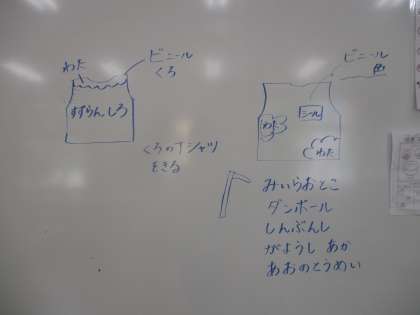 わた
ビニール
くろ
すずらん しろ
くろのTシャツ
をきる
ビニール
色
シール
わた
わた
みいらおとこ
ダンボール
しんぶんし
がようし あか
あおのとうめい